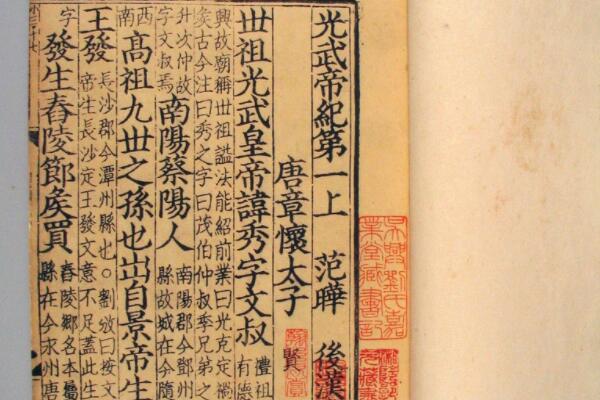 光武帝紀第一上 范曄 後漢
唐章懷太子 賢
世祖光武皇帝諱秀字文叔 禮祖
有德
興故廟稱世祖諡法能紹前業曰光克定禍
矦古今注曰秀之字曰茂伯仲叔季兄弟之
升次仲故
字文叔焉
南陽蔡陽人 南陽郡今鄧州
縣故城在今隨
西
南
高祖九世之孫也出自景帝生
王發 長沙郡今潭州縣也○劉攽曰按文
帝生長沙定王發文意不足蓋此生
字
發生舂陵節矦買 舂陵鄉名本屬
縣在今永州唐
吳興劉氏嘉
業堂藏書記